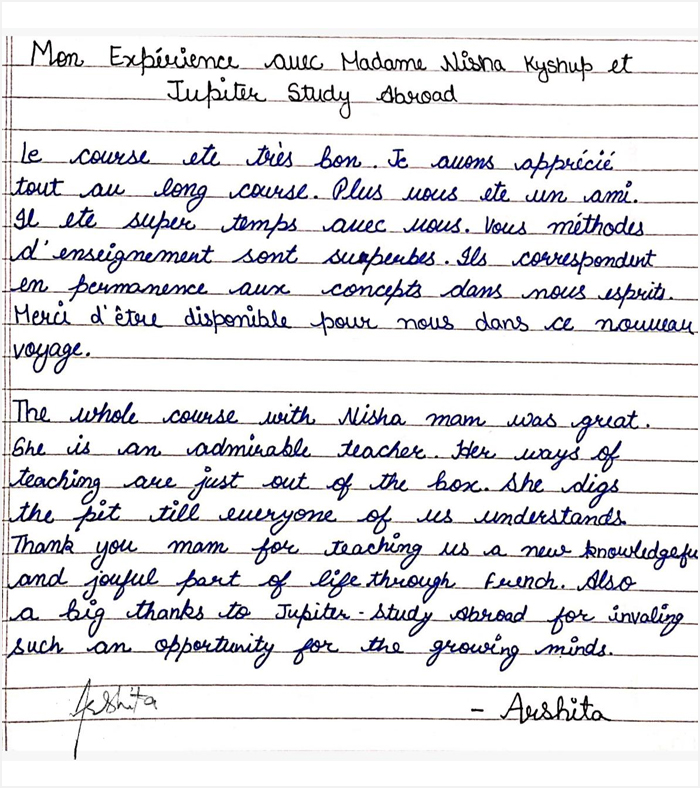 Mon Expérience avec Madame Nisha Kyshup et
Jupiter Study Abroad
Le course ete très bon. Je avons apprécié
tout au long course. Plus vous ete un ami.
Il ete super temps avec vous. Vous méthodes
d'enseignement sont surperbes. Ils correspondent
en permanence aux concepts dans nous esprits.
Merci d'être disponible pour nous dans ce nouveau
voyage.
The whole course with Nisha mam was great.
She is an admirable teacher. Her ways of
teaching are just out of the box. She digs
the pit till everyone of us understands.
Thank you mam for teaching us a new knowledgefu
and joyful part of life through French. Also
a big thanks to Jupiter-Study Abroad for invaling
such an opportunity for the growing minds.
Arshita - Arshita